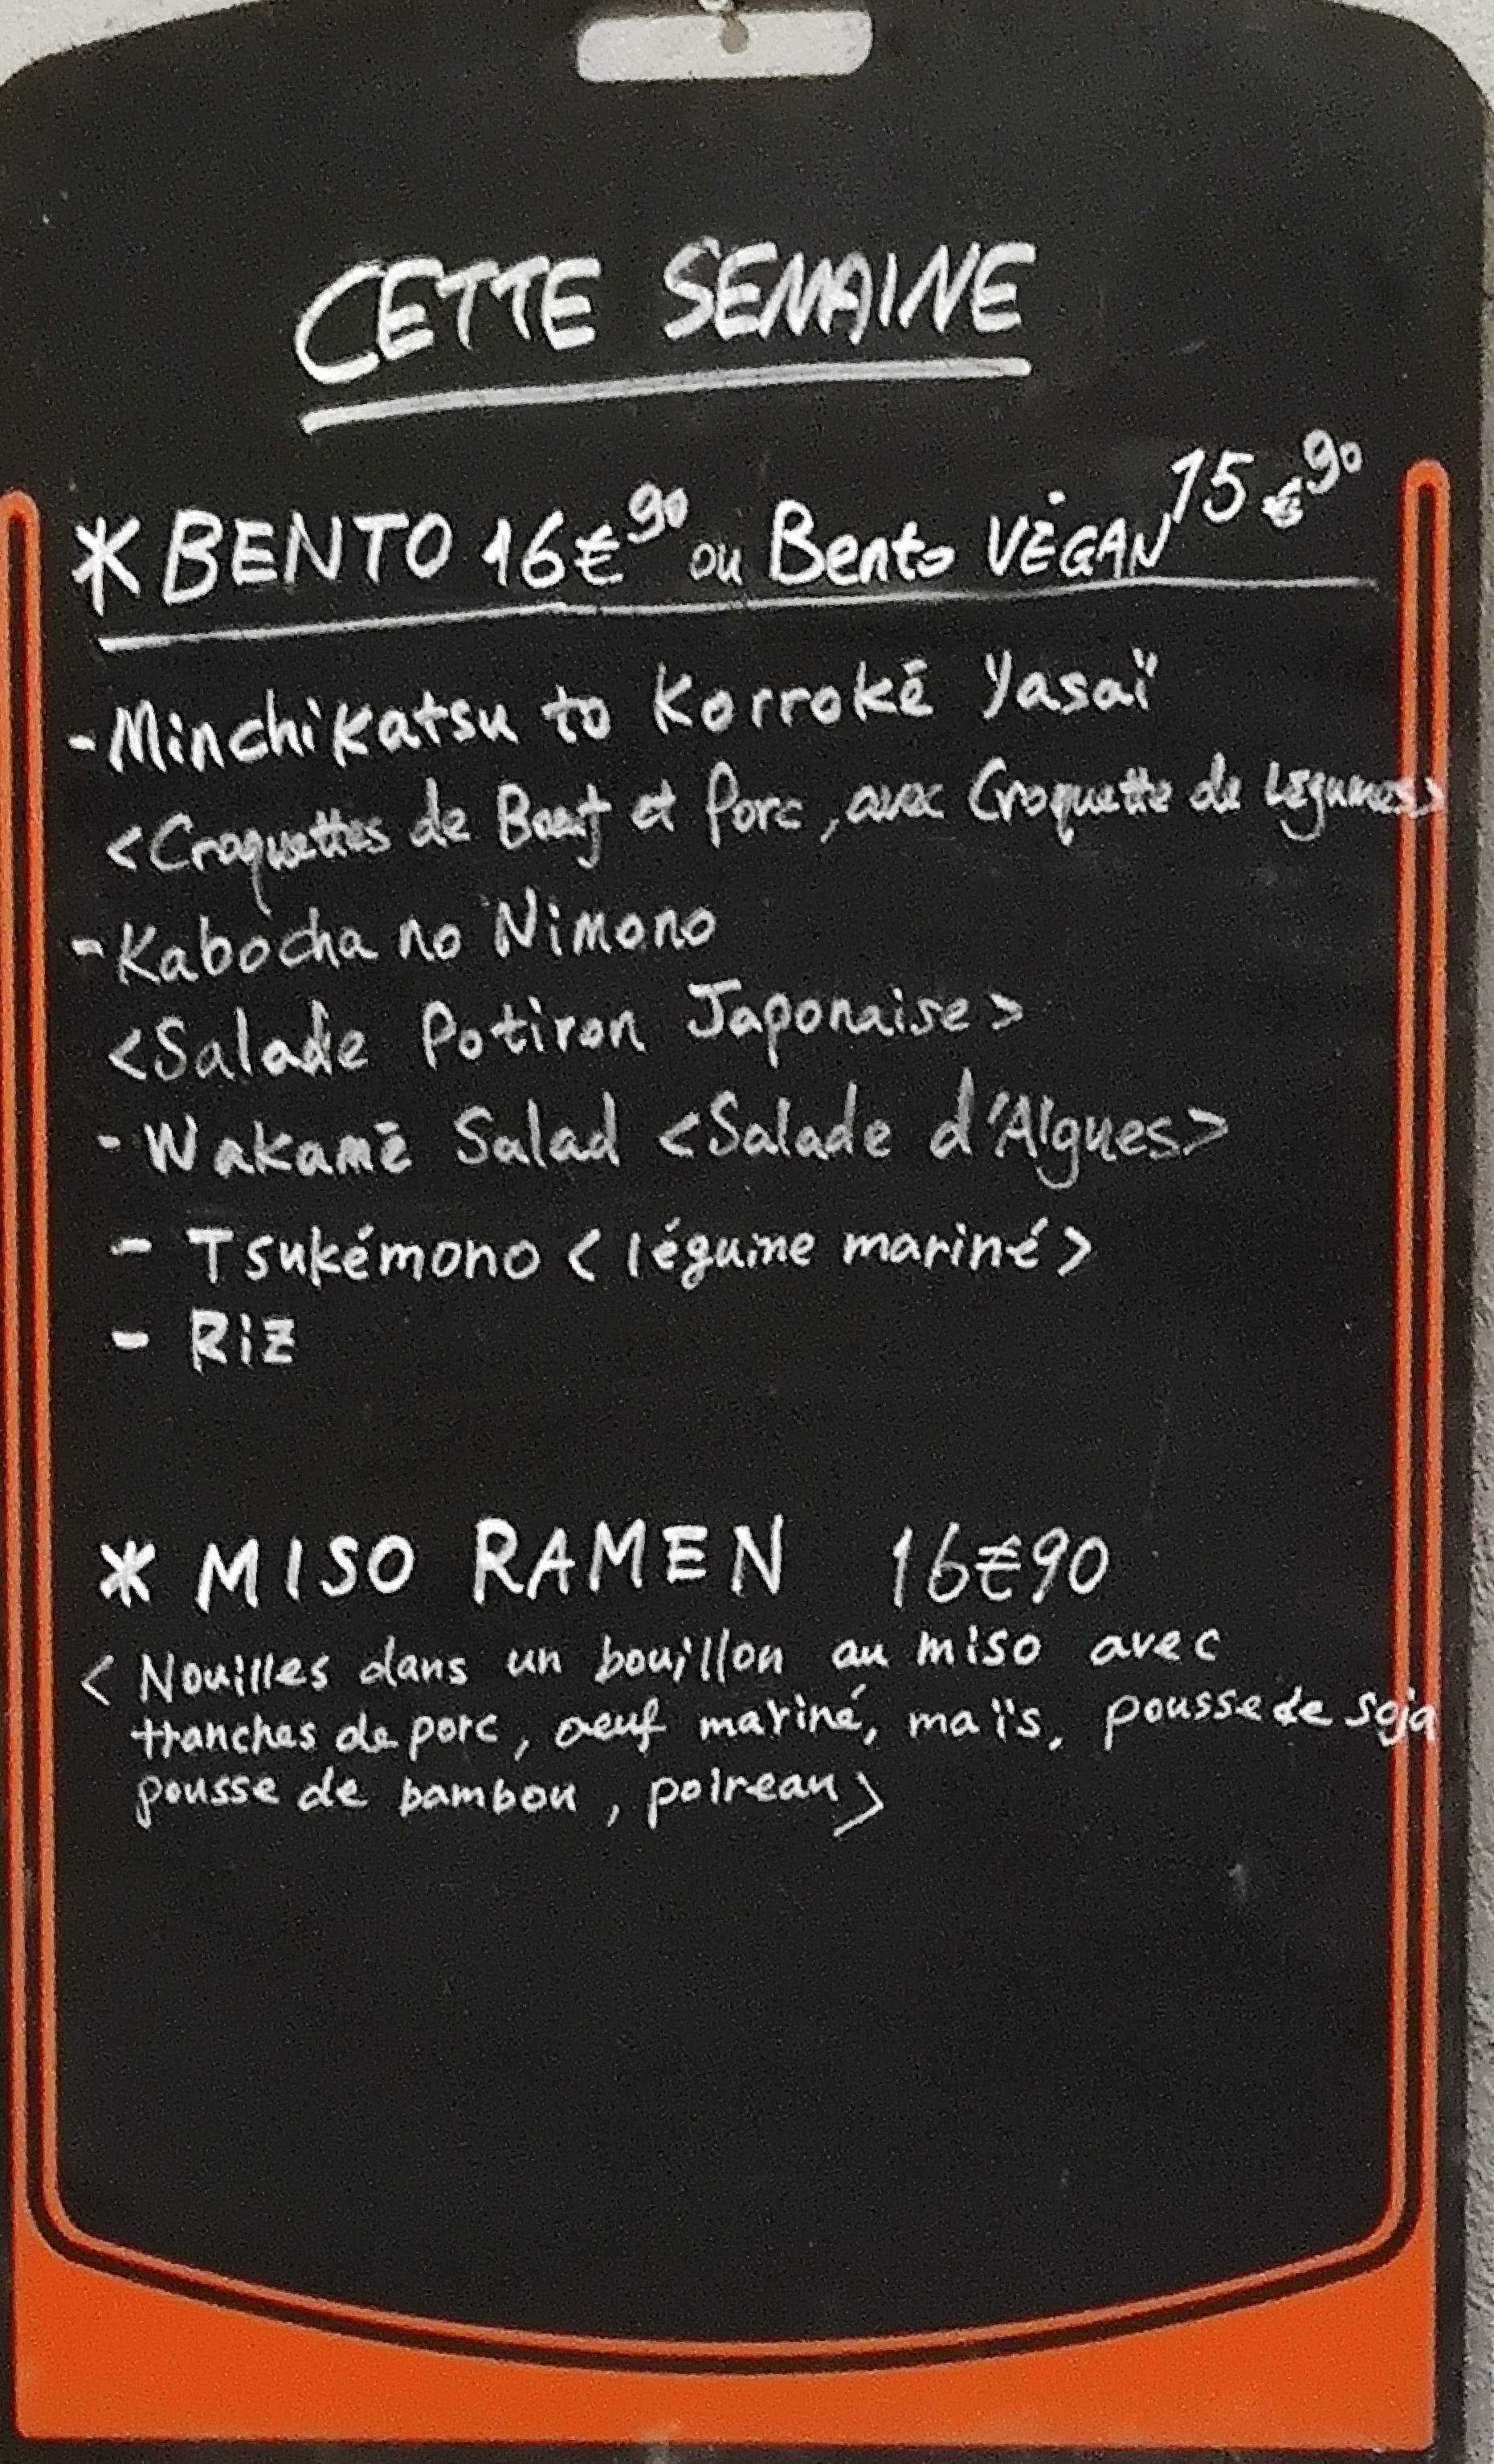 CETTE SEMAINE
* BENTO 16€90 ou Bento VÉGAN 15€90
- Minchikatsu to Korroké Yasaï
<Croquettes de Boeuf et Porc, avec Croquette de Légumes>
- Kabocha no Nimono
<Salade Potiron Japonaise>
- Wakamé Salad <Salade d'Algues>
- Tsukémono <légume mariné>
- Riz
* MISO RAMEN 16€90
< Nouilles dans un bouillon au miso avec
tranches de porc, oeuf mariné, maïs, pousse de soja
pousse de bambou, poireau>